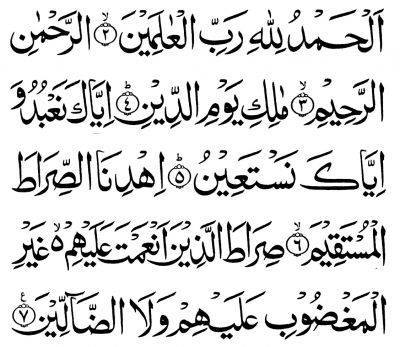 اَلْحَمْدُ لِلّٰهِ رَبِّ الْعٰلَمِیْنَ ۙ﴿۲﴾ الرَّحْمٰنِ
الرَّحِیْمِ ۙ﴿۳﴾ مٰلِكِ یَوْمِ الدِّیْنِ ؕ﴿۴﴾ اِیَّاكَ نَعْبُدُ وَ
اِیَّاكَ نَسْتَعِیْنُ ؕ﴿۵﴾ اِهْدِنَا الصِّرَاطَ
الْمُسْتَقِیْمَ ۙ﴿۶﴾ صِرَاطَ الَّذِیْنَ اَنْعَمْتَ عَلَیْهِمْ ۙ۬ۥ غَیْرِ
الْمَغْضُوْبِ عَلَیْهِمْ وَلَا الضَّآلِّیْنَ ﴿۷﴾ ع